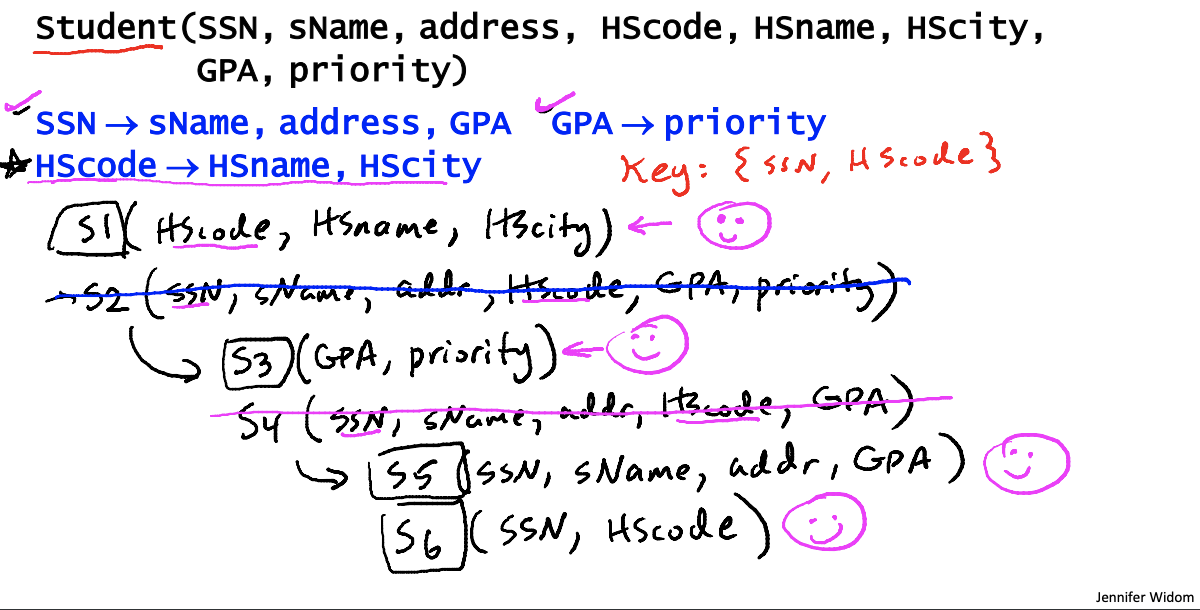 Student(SSN, sName, address, HScode, HSname, HScity,
GPA, priority)
SSN → sName, address, GPA GPA → priority
HScode → HSname, HScity
Key: {SSN, HScode}
S1(HScode, HSname, HScity) ←
S2(SSN, sName, addr, HScode, GPA, priority)
S3(GPA, priority) ←
S4(SSN, sName, addr, HScode, GPA)
S5(SSN, sName, addr, GPA)
S6(SSN, HScode)
Jennifer Widom